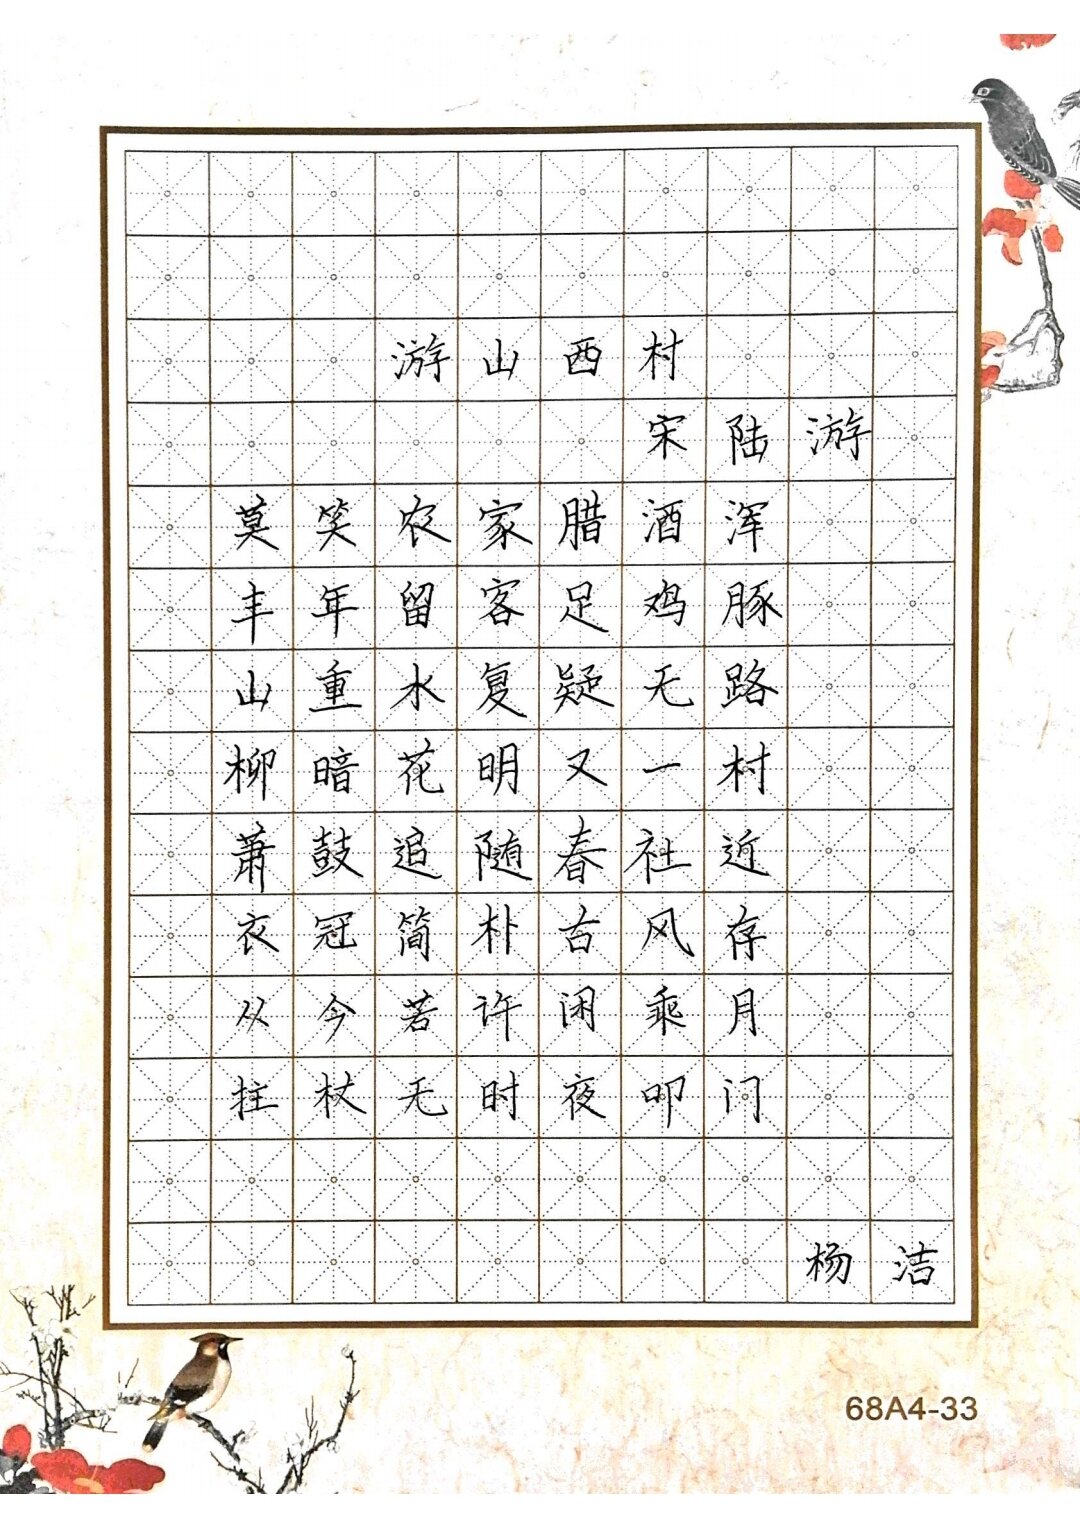 游山西村
宋陆游
莫笑农家腊酒浑
丰年留客足鸡豚
山重水复疑无路
柳暗花明又一村
萧鼓追随春社近
衣冠简朴古风存
从今若许闲乘月
拄杖无时夜叩门
杨洁
68A4-33